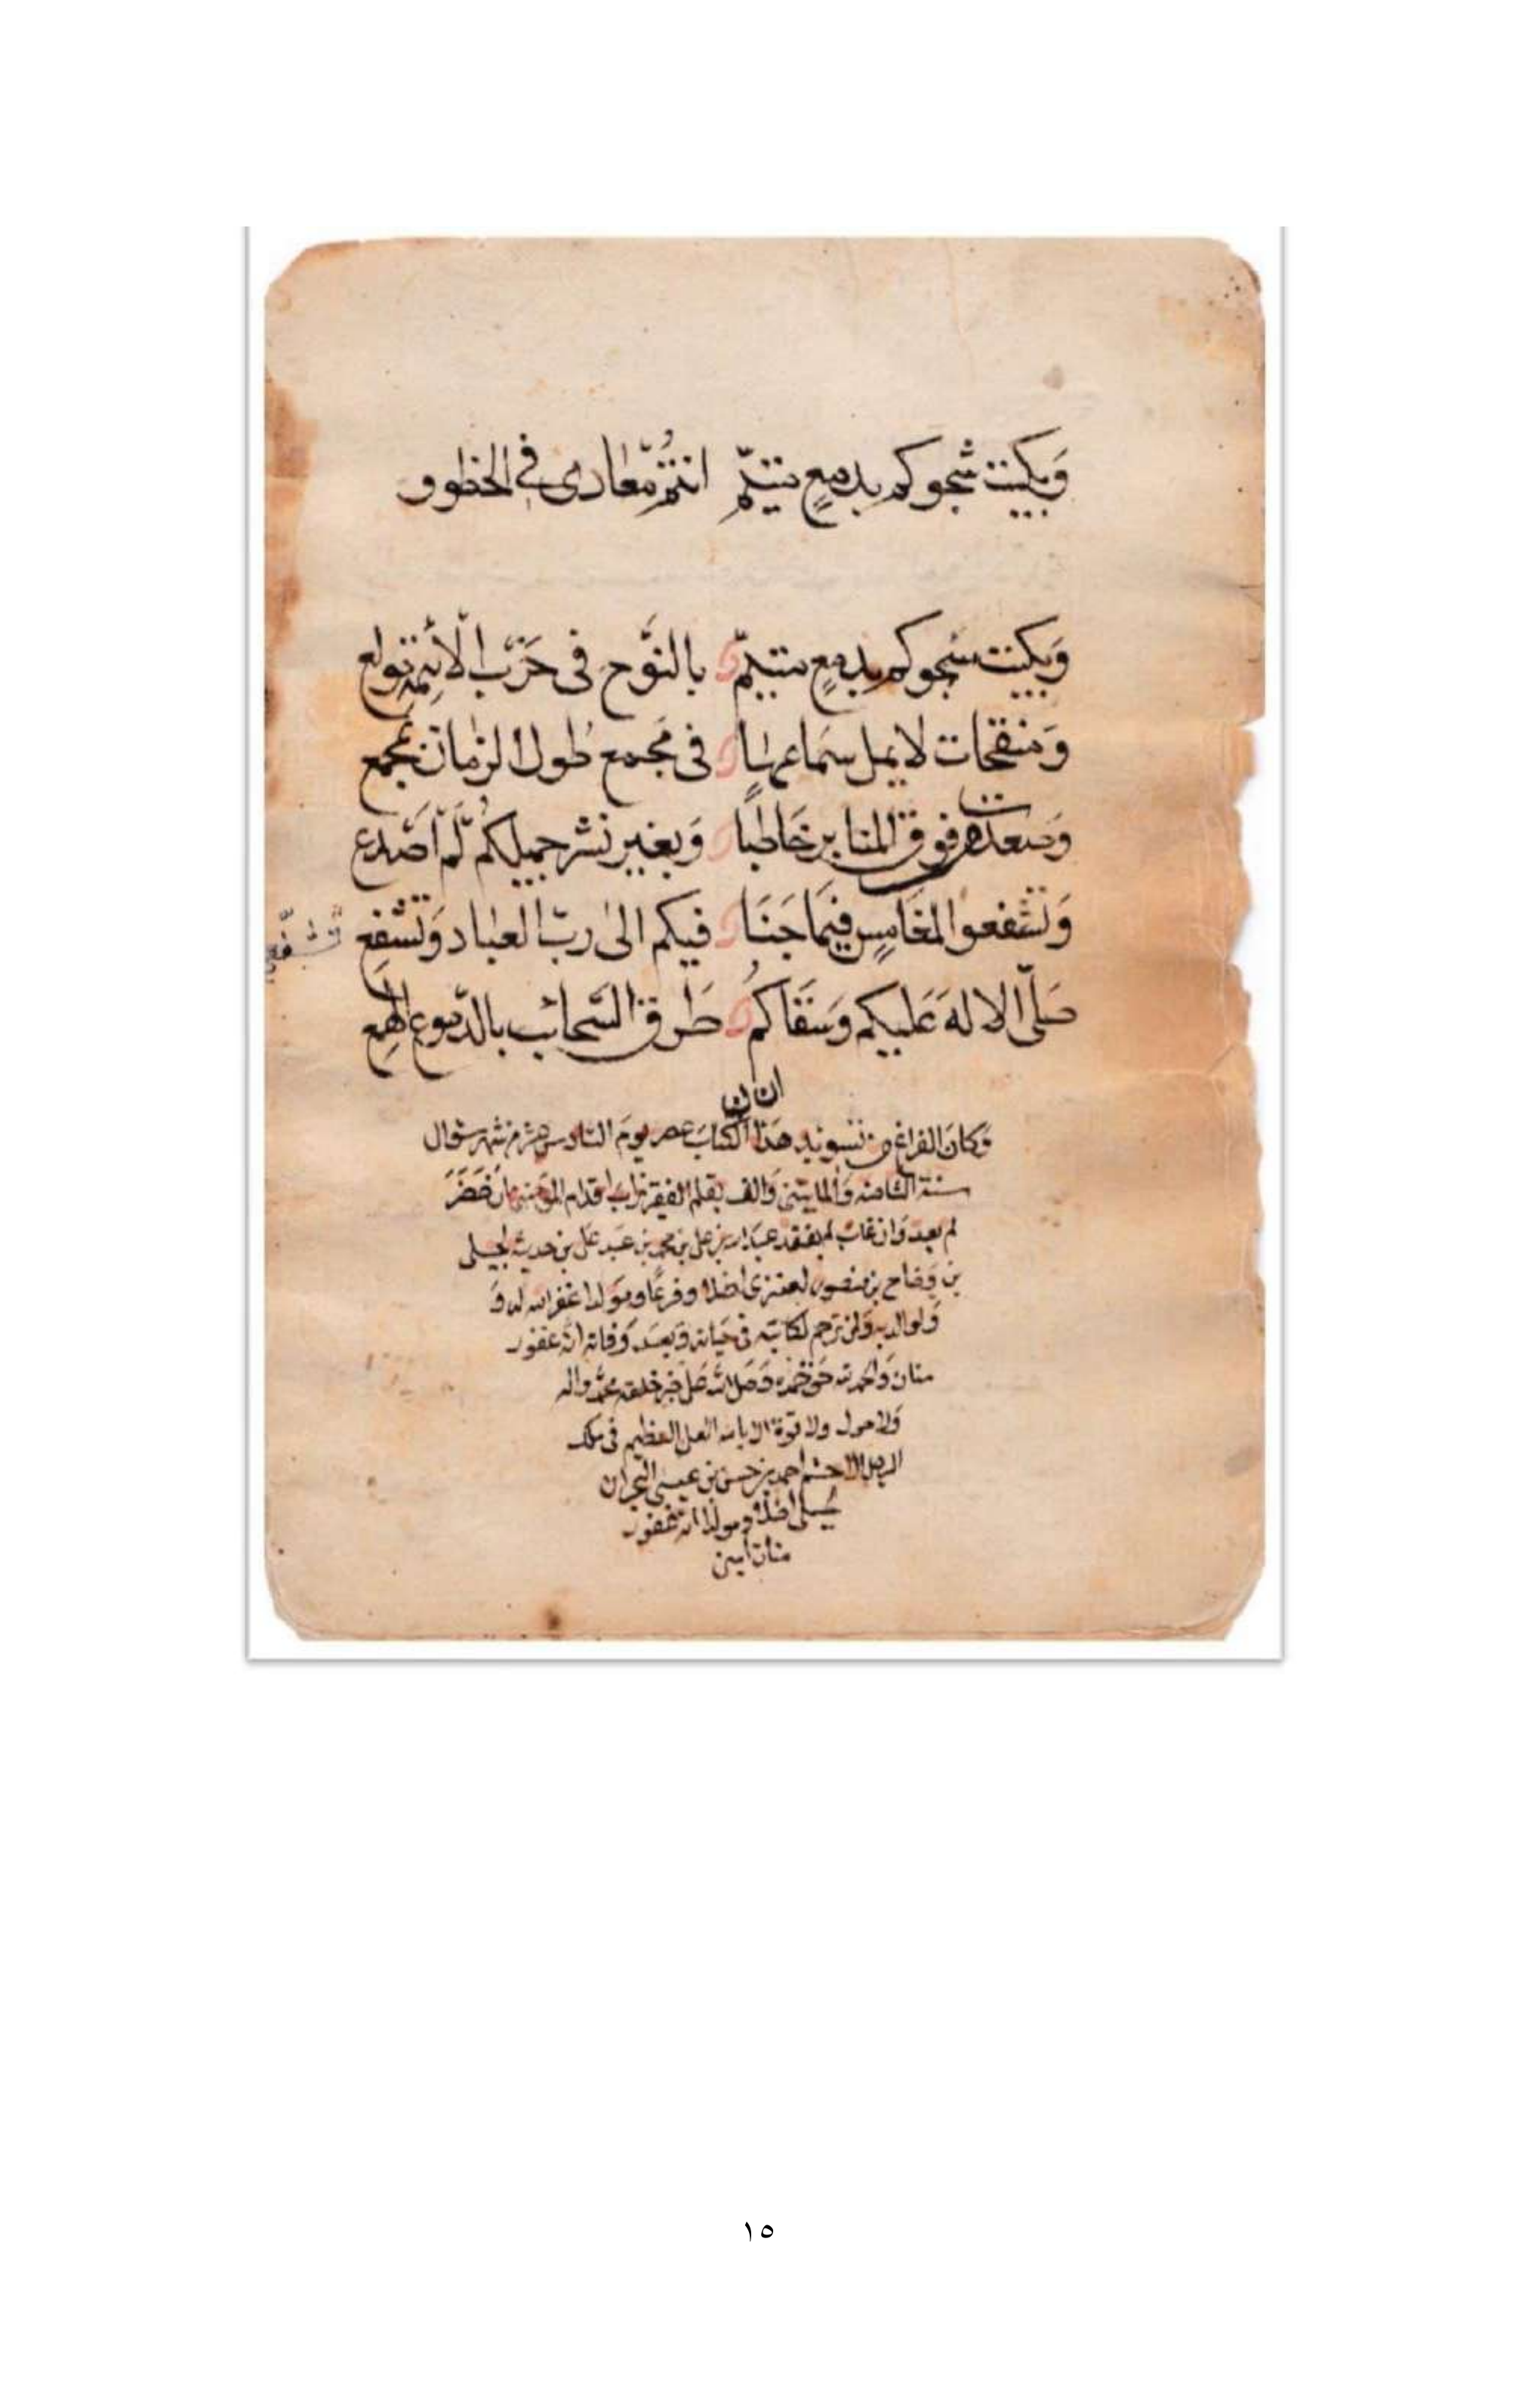 وَبكيت شجوكم بدمعٍ انتُم في الخطوو
وَبكيت شجوكم بدمعٍ بالنَّوح فى الأئمة تولع
وَمنقحات لا يمل سَماعها فى مَجمع طُول الزمان تجمع
وصَعدت فوق المنابر خَاطبا وَبغير نشر جميلكُم لَم اَصدع
وَتشفعوا لمغامس فيمَا جَنَا فيكم الىٰ ربّ العباد وَتشفع
تشفّع
صَلّى الالهَ عَليكم وَسَقَاكمُ طَرق السَّحائب بالدّموع الهمع
وَكانَ الفراغ من تسويد هَذا الكتاب عصر يومَ السادس عشر من شهر شوال
سنة الثامنه وَالمايتين وَالف بقلم الفقير تراب اقدام المؤمنين ان حَضَرَ
لم يعد وَان غاب لم يفقد بن على بن محمد بن عَبد على بن
بن بن منصور اصلاً وفرعًا ومَولدا غفر الله له وَ
وَلوالديه وَلمن ترحم لكاتبه فى حَياته وَبعد وَفاته انّه غفور
منان وَالحمد لله حَق حَمده وَصَلى الله عَلى خير خلقه محمّد واله
وَلا حول ولا قوة الا بالله العلى العظيم فى ملك
احمد بن حسن بن عيسى
اصلاً ومولدا انه غفور
منان امين
١٥